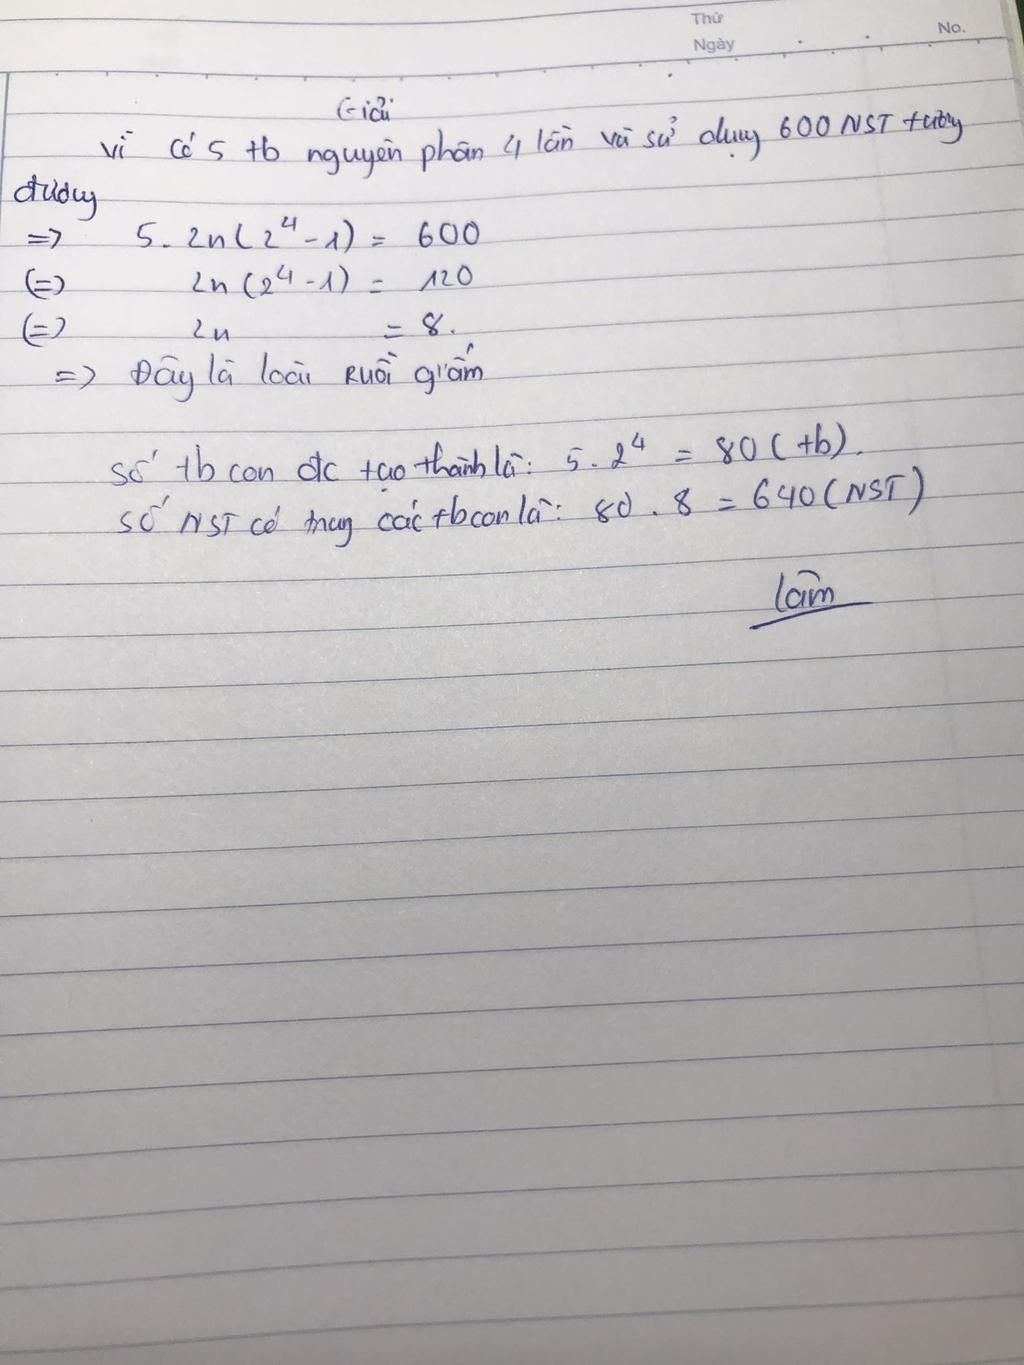 Thứ
Ngày
No.
Giải
Vì có 5 tb nguyên phân 4 lần và sử dụng 600 NST tương
đương
=> 5. 2n(2⁴-1) = 600
(=) 2n(2⁴-1) = 120
(=) 2n = 8.
=> Đây là loài Ruồi giấm
số tb con đc tạo thành là: 5. 2⁴ = 80 (tb).
số NST có trong các tb con là: 80 . 8 = 640 (NST)